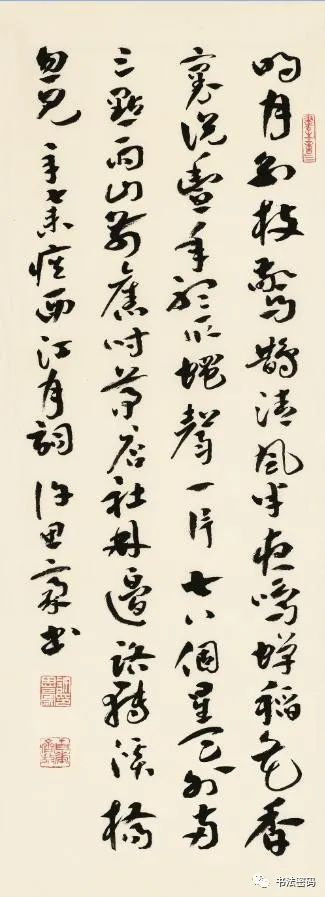 明月别枝驚鵲清風半夜鳴蟬稻花香
裏説豐年聽取蛙聲一片七八個星天外兩
三點雨山前舊時茅店社林邊路轉溪橋
忽見 辛棄疾西江月詞 許思豪書
书法密码